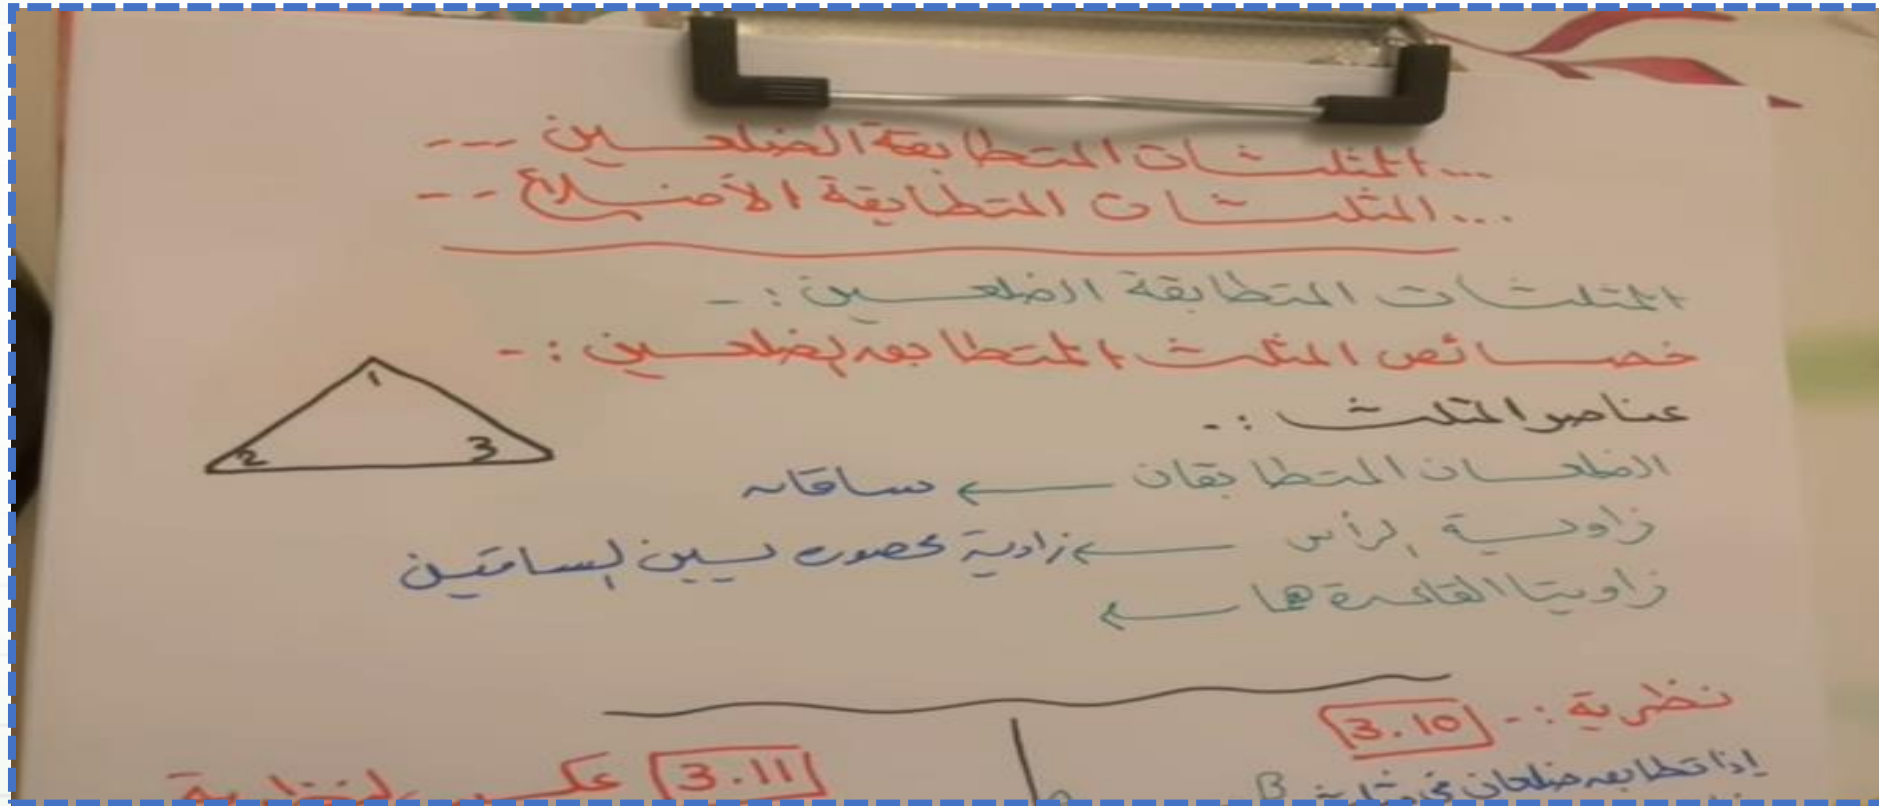 ...المثلثات المتطابقة الضلعين ---
...المثلثات المتطابقة الأضلاع --
المثلثات المتطابقة الضلعين :-
خصائص المثلث المتطابق الضلعين :-
عناصر المثلث :-
الضلعان المتطابقان ← ساقان
زاوية الرأس ← زاوية محصورة بين الساقين
زاويتا القاعدة هما ←
1
2
3
نظرية :- 3.10
إذا تطابق ضلعان في مثلث
B
3.11 عكس النظرية